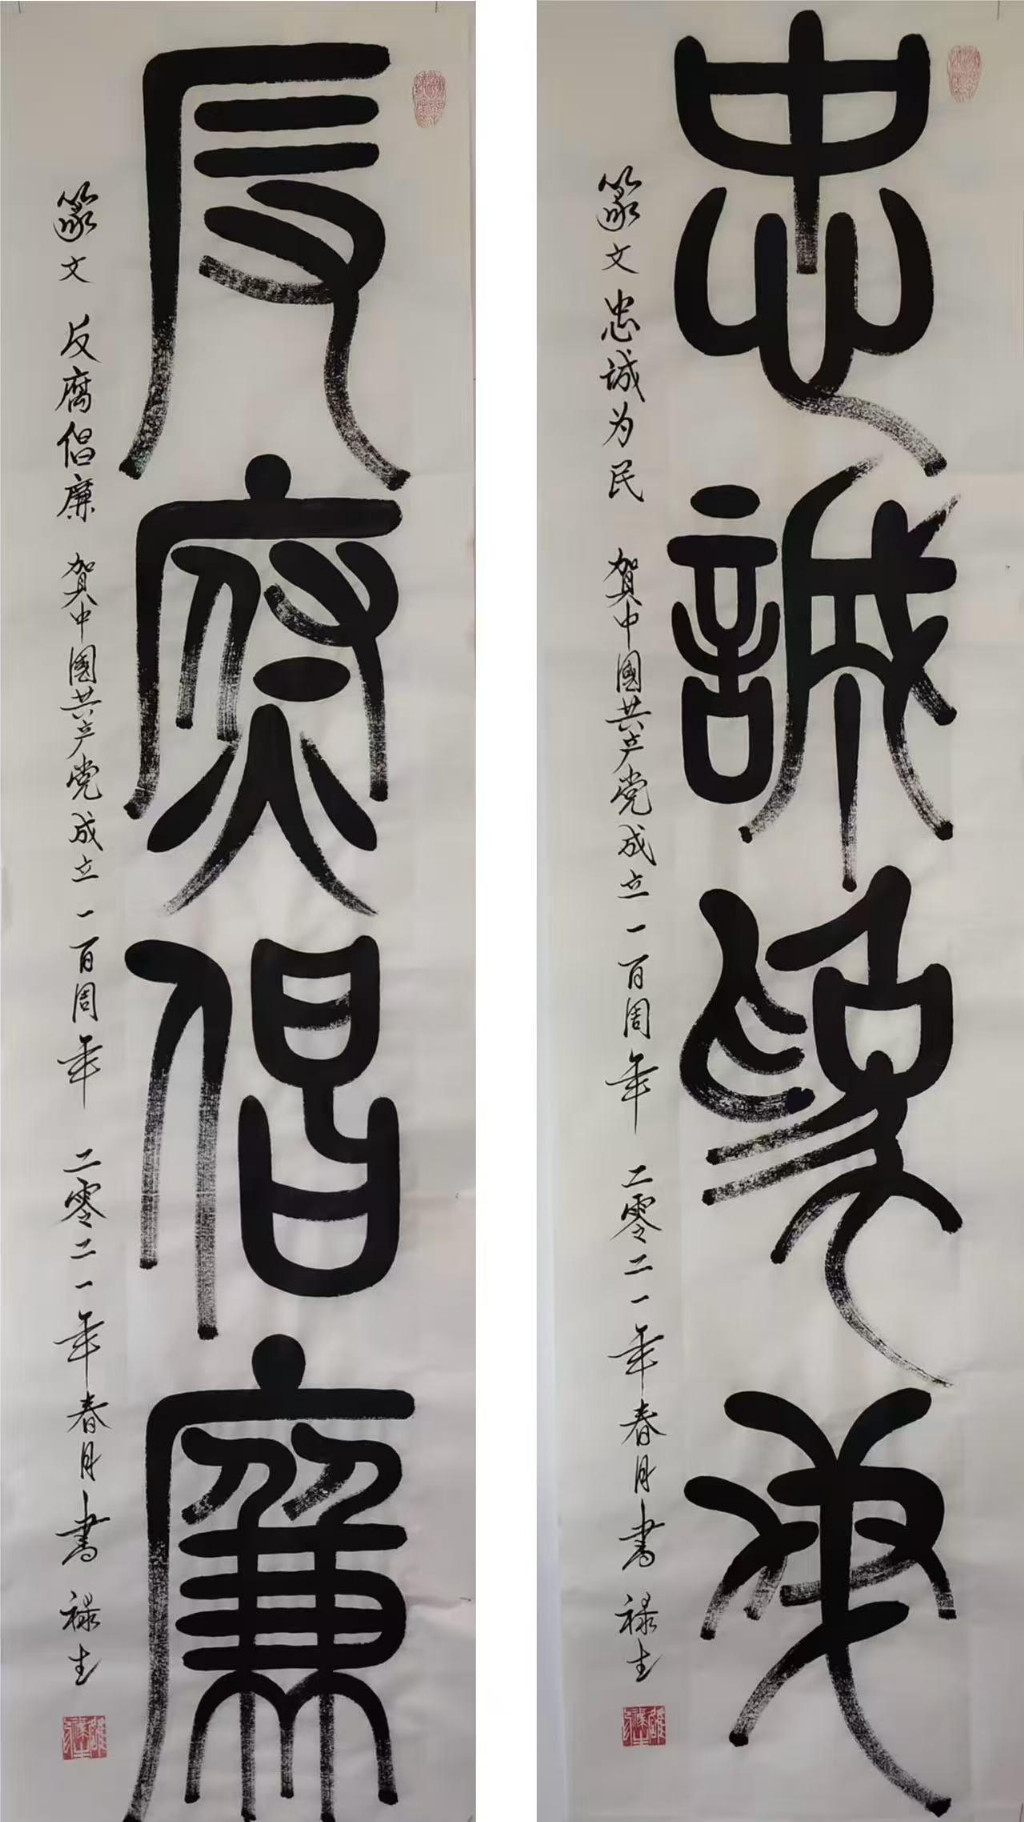 忠誠為民
篆文 忠诚为民 贺中國共产党成立一百周年 二零二一年春月书 禄生
反腐倡廉
篆文 反腐倡廉 贺中國共产党成立一百周年 二零二一年春月书 禄生